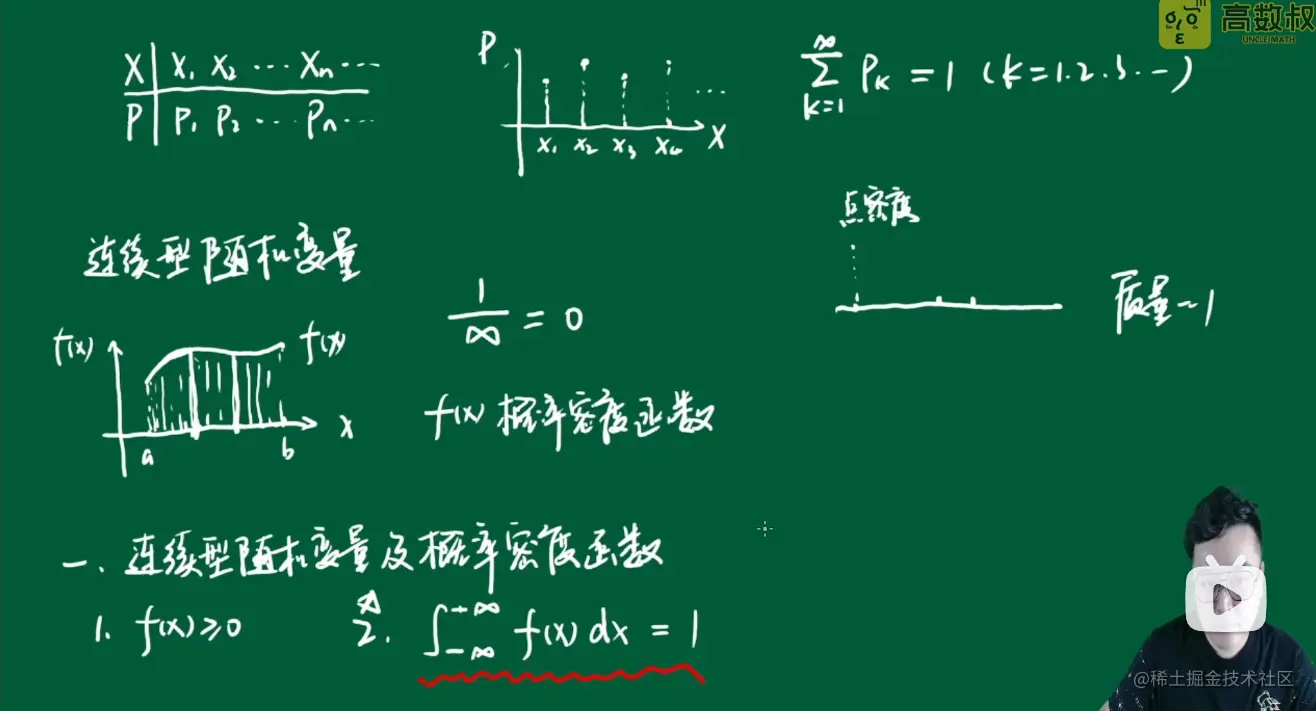 高数叔
UNCLE MATH
X X₁ X₂ ⋯ Xₙ ⋯
P P₁ P₂ ⋯ Pₙ ⋯
P
x₁ x₂ x₃ x₄ ⋯ X
∞
∑ Pₖ = 1 (k=1.2.3.⋯)
k=1
点密度
质量=1
连续型随机变量
f(x) f(x)
a b x
1/∞ = 0
f(x) 概率密度函数
一. 连续型随机变量及概率密度函数
1. f(x)≥0 2. ∫₋∞⁺∞ f(x) dx = 1
@稀土掘金技术社区